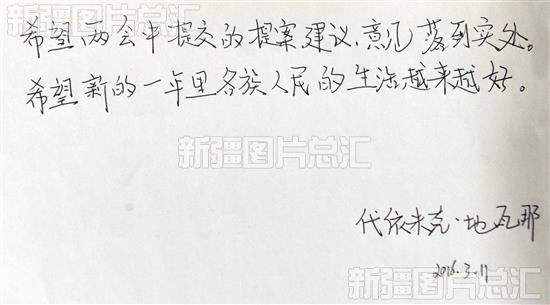 希望两会中提交的提案建议、意见落到实处。
希望新的一年里各族人民的生活越来越好。
新疆图片总汇
代依木克·地瓦那
2016.3.11